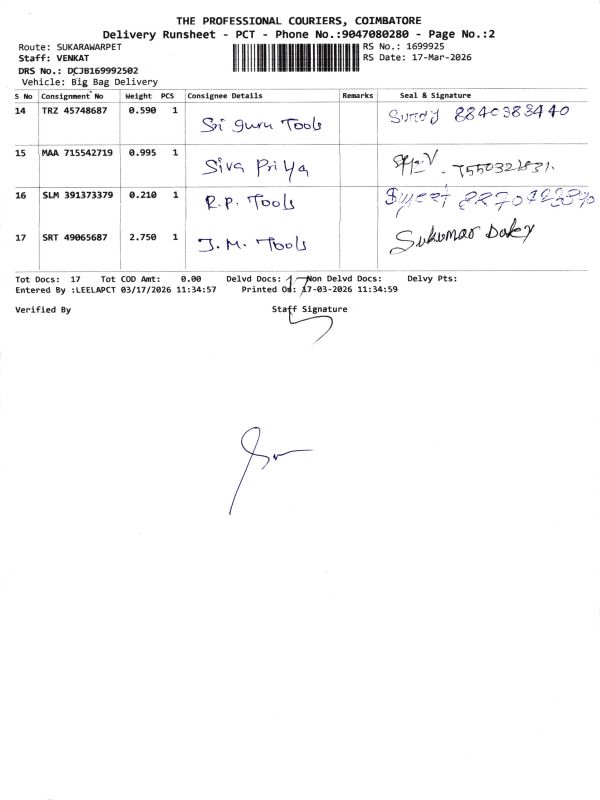 THE PROFESSIONAL COURIERS, COIMBATORE
Delivery Runsheet - PCT - Phone No.:9047080280 - Page No.:2
Route: SUKARAWARPET RS No.: 1699925
Staff: VENKAT RS Date: 17-Mar-2026
DRS No.: DCJB169992502
Vehicle: Big Bag Delivery
S No Consignment No Weight PCS Consignee Details Remarks Seal & Signature
14 TRZ 45748687 0.590 1 Sri guru Tools 8840383440
15 MAA 715542719 0.995 1 Siva Priya
16 SLM 391373379 0.210 1 R.P. Tools
17 SRT 49065687 2.750 1 J.M. Tools Sukumar
Tot Docs: 17 Tot COD Amt: 0.00 Delvd Docs: 17 Non Delvd Docs: Delvy Pts:
Entered By :LEELAPCT 03/17/2026 11:34:57 Printed On: 17-03-2026 11:34:59
Verified By Staff Signature